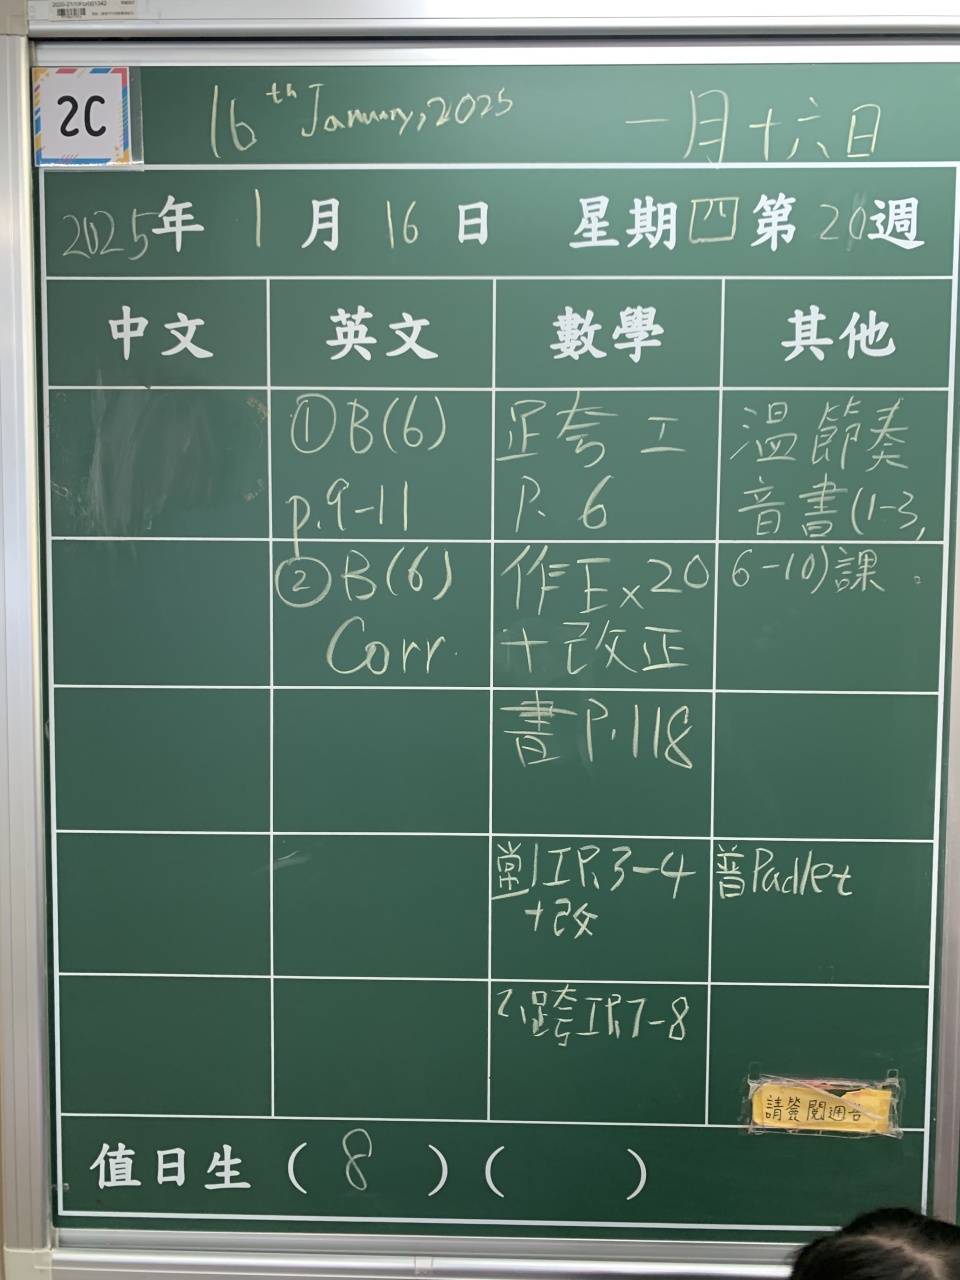 2C
16th January, 2025
一月十六日
2025年 1月16日 星期四 第20週
中文 英文 數學 其他
①B(6)
p.9-11
②B(6)
Corr.
跨工
P. 6
作Ex20
+改正
書P.118
1工P.3-4
+改
2.跨工P.7-8
溫節奏
音書(1-3,
6-10)課.
普Padlet
請簽閱週
值日生(8)( )